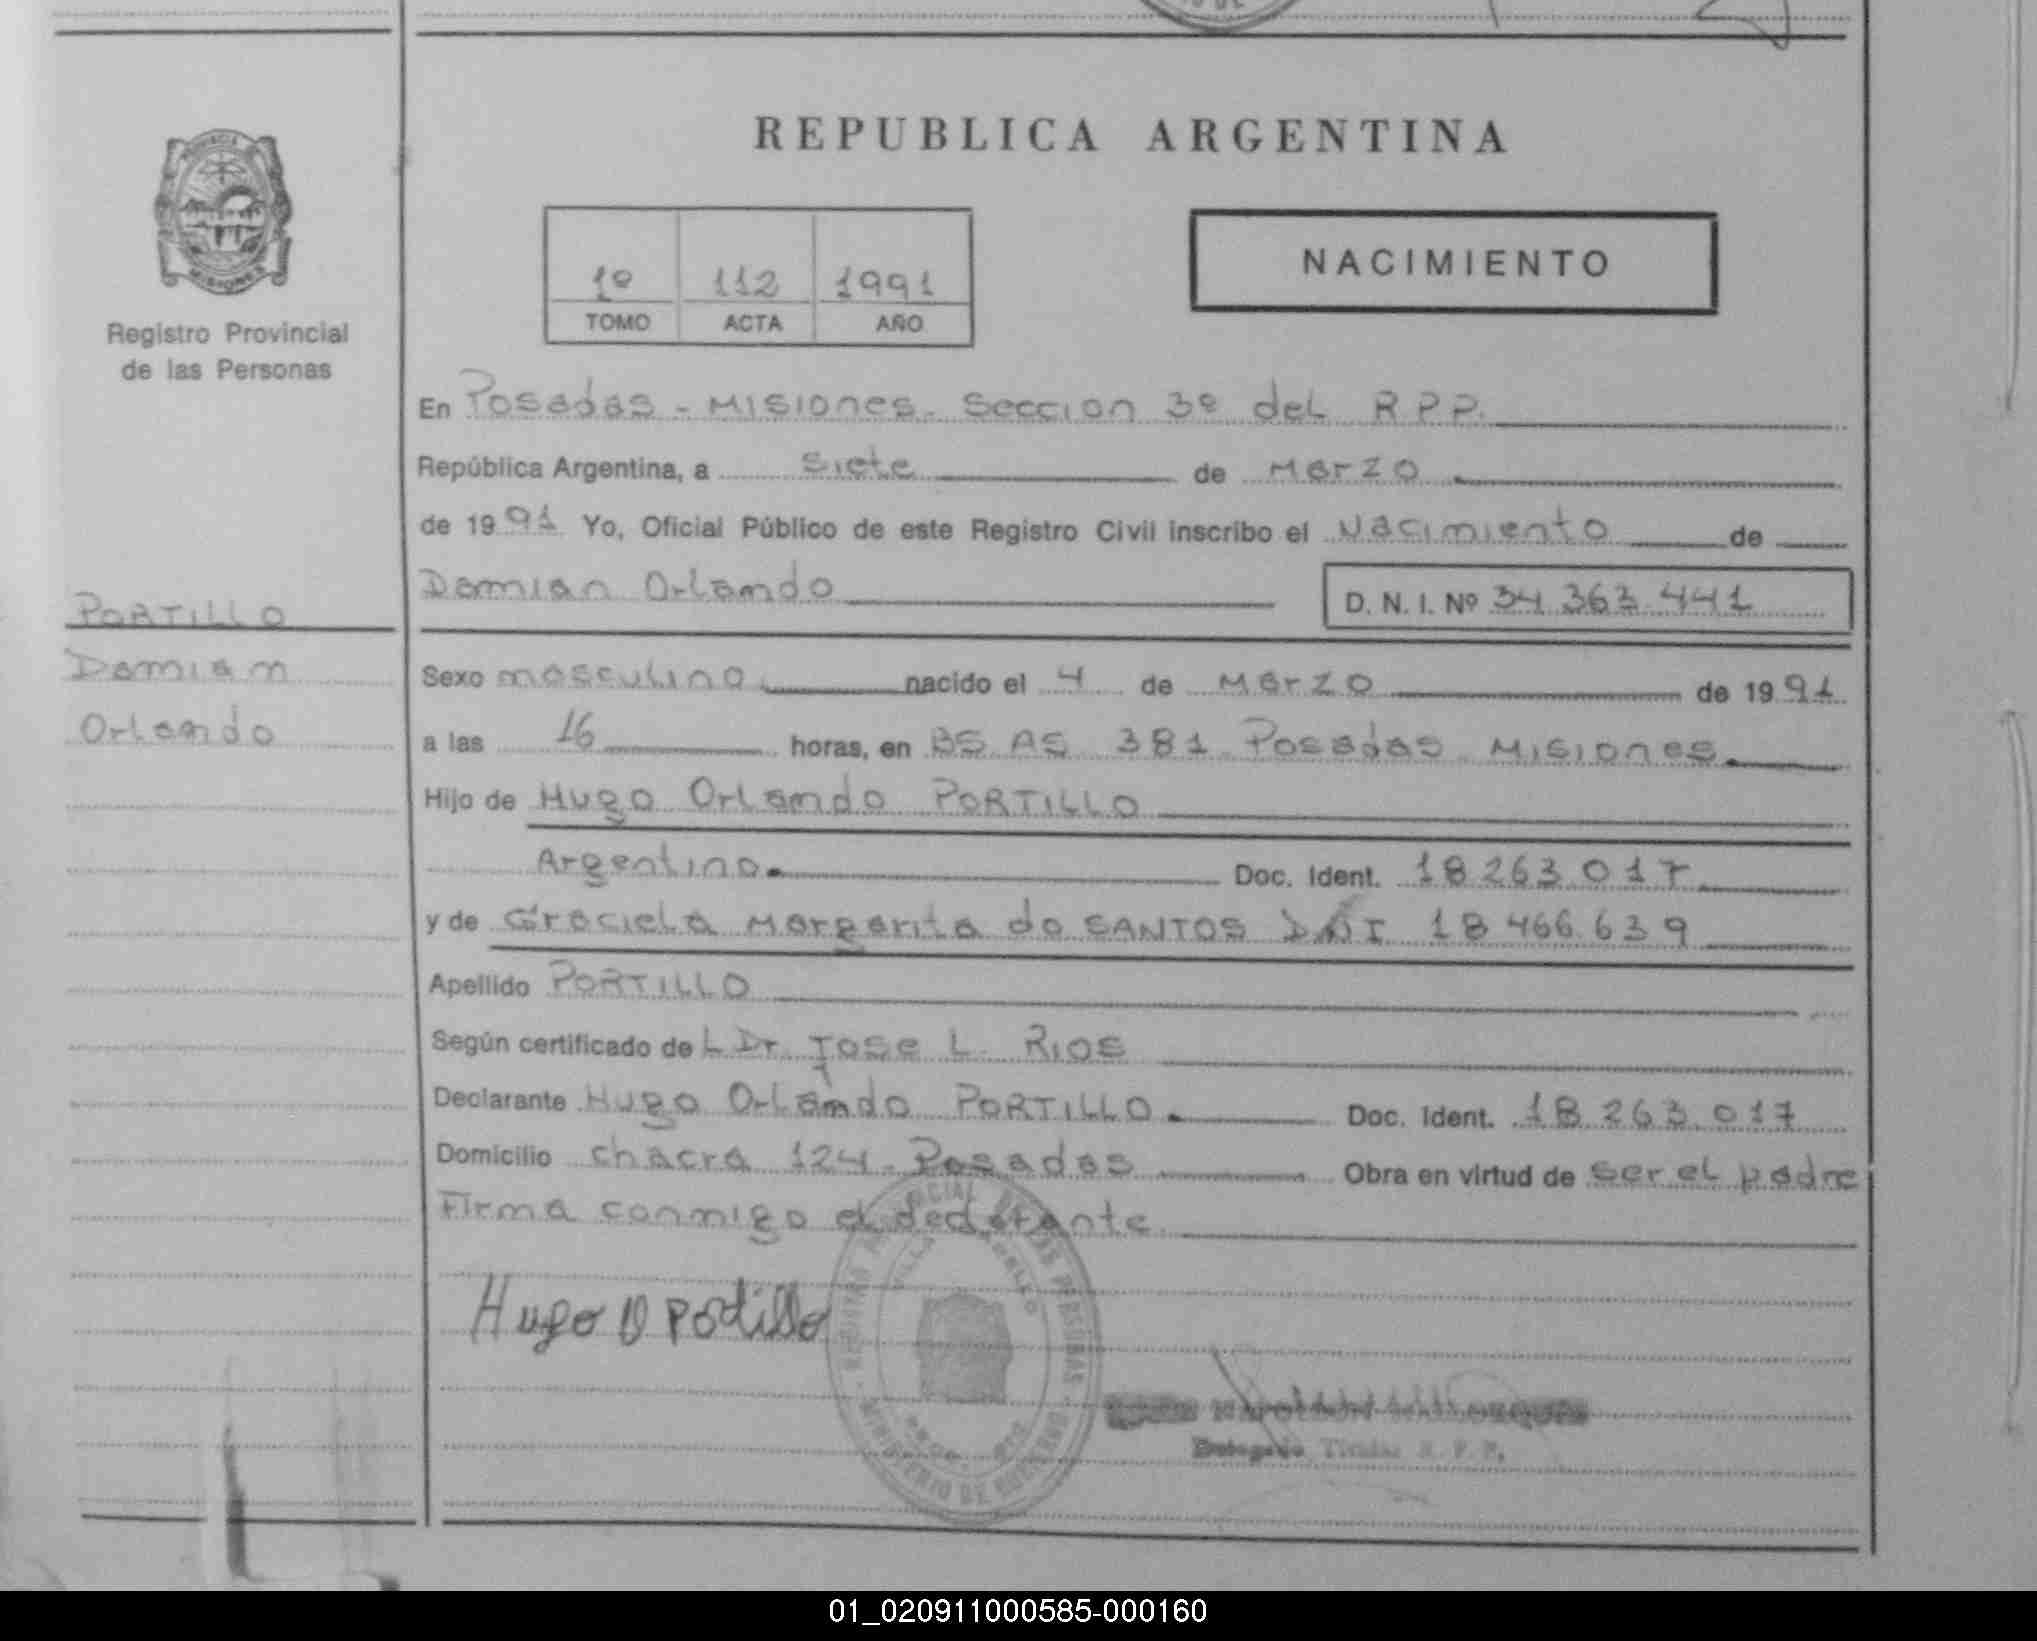 REPUBLICA ARGENTINA
MISIONES
Registro Provincial
de las Personas
1º 112 1991
TOMO ACTA AÑO
NACIMIENTO
En Posadas - Misiones - Seccion 3º del R.P.P.
República Argentina, a siete de Marzo
de 1991 Yo, Oficial Público de este Registro Civil inscribo el Nacimiento de
Damian Orlando D. N. I. Nº 34.363.441
PORTILLO
Damian
Orlando
Sexo masculino nacido el 4 de Marzo de 1991
a las 16 horas, en BS AS 381 Posadas Misiones
Hijo de Hugo Orlando PORTILLO
Argentino Doc. Ident. 18.263.017
y de Graciela Margarita do SANTOS DNI 18.466.639
Apellido PORTILLO
Según certificado de L Dr. Jose L. Rios
Declarante Hugo Orlando PORTILLO Doc. Ident. 18.263.017
Domicilio chacra 124 - Posadas Obra en virtud de ser el padre
Firma conmigo el declarante
Hugo O Portillo
REGISTRO PROVINCIAL DE LAS PERSONAS
MINISTERIO DE GOBIERNO
VILLA
Delegado Titular R. P. P.
01_020911000585-000160